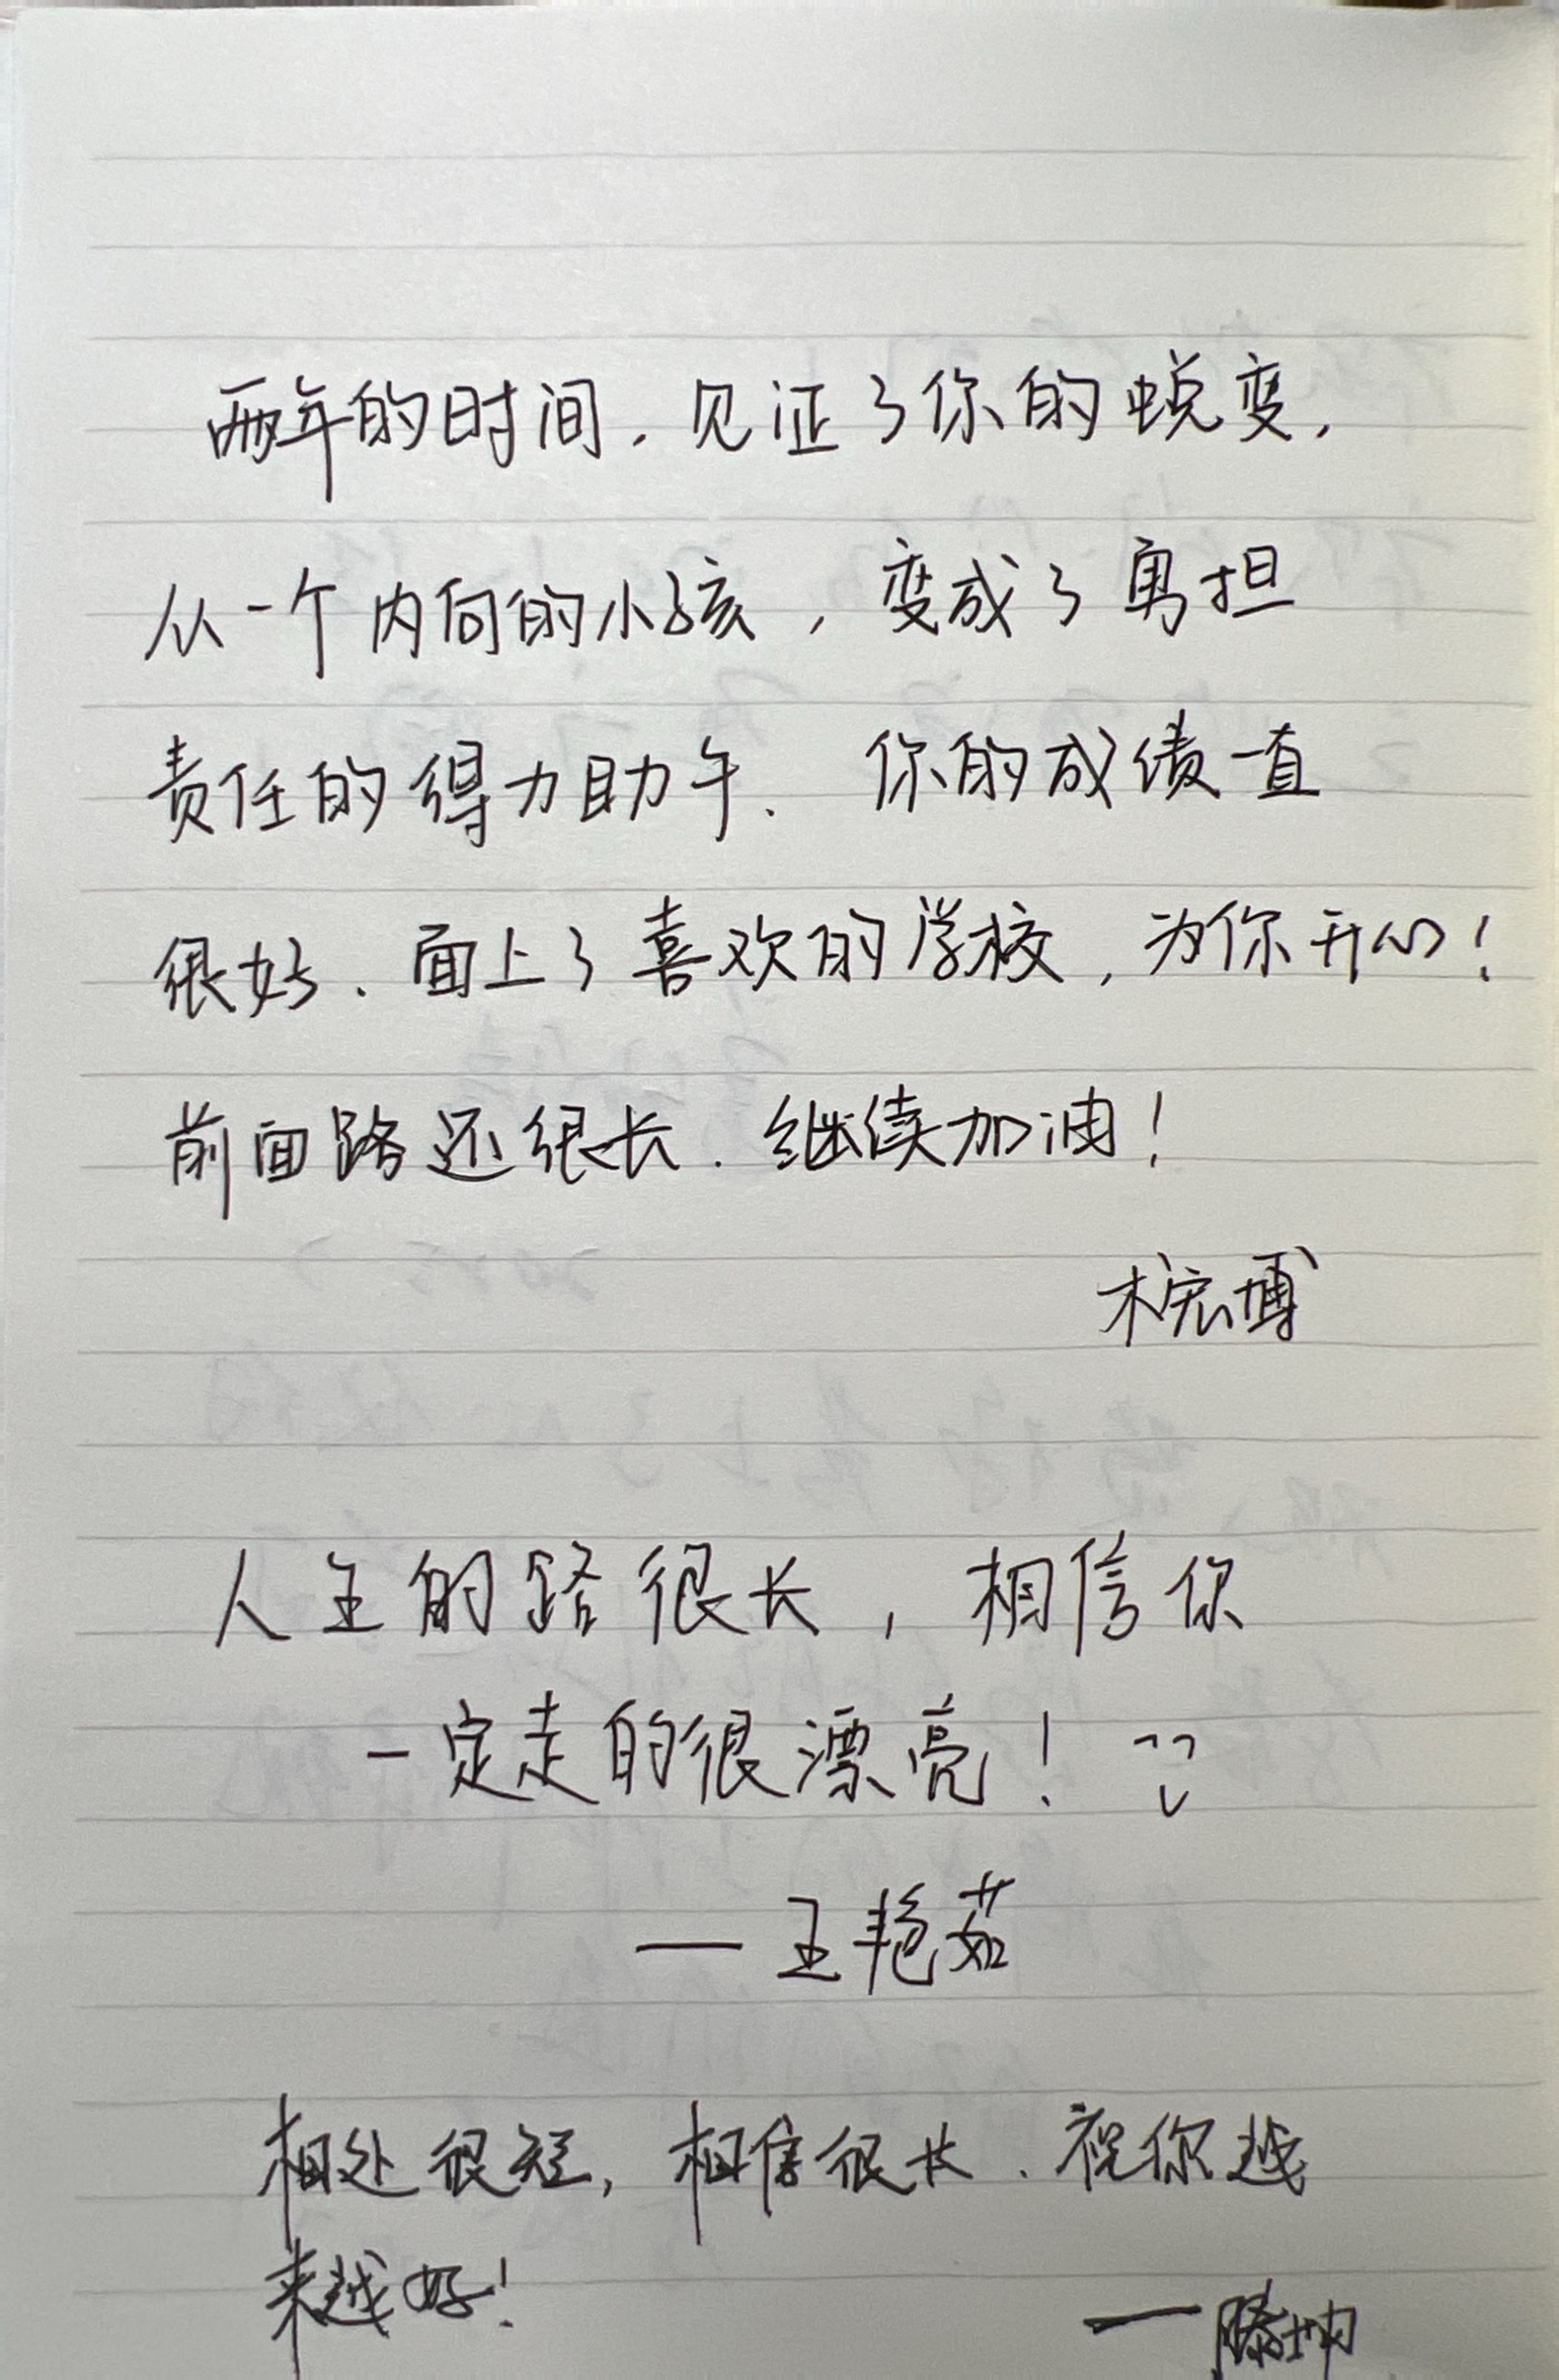 两年的时间，见证了你的蜕变，
从一个内向的小孩，变成了勇担
责任的得力助手、你的成绩一直
很好、面上了喜欢的学校，为你开心！
前面路还很长、继续加油！
宏博
人生的路很长，相信你
一定走的很漂亮！
—王艳茹
相处很短，相信很长、祝你越
来越好！
—滕坤